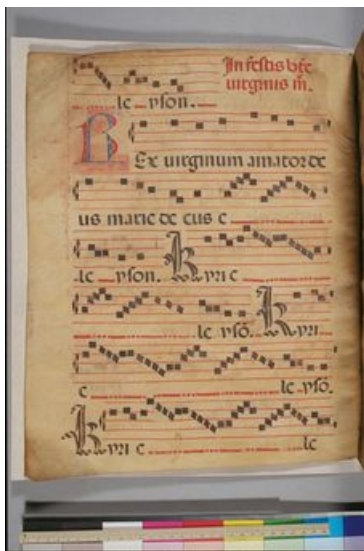 In festis bte
uirginis m̄.
le yson.
Rex uirginum amator de
us marie de cus e
le yson. Kyri e
le ysō. Kyri
e le ysō.
Kyri e le